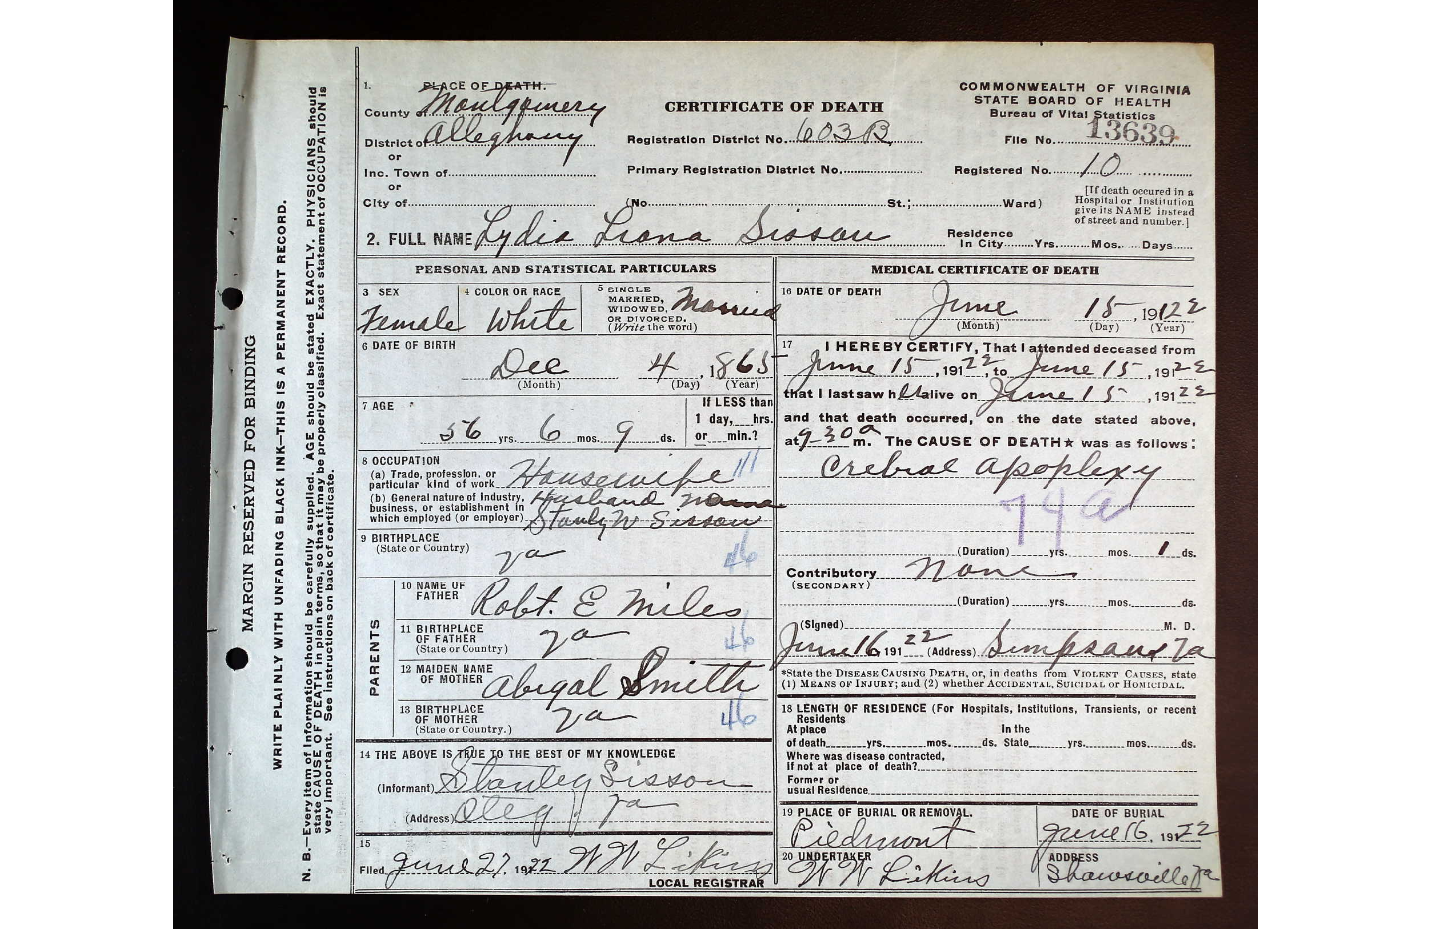 MARGIN RESERVED FOR BINDING
WRITE PLAINLY WITH UNFADING BLACK INK—THIS IS A PERMANENT RECORD.
N. B.—Every item of information should be carefully supplied. AGE should be stated EXACTLY. PHYSICIANS should
state CAUSE OF DEATH in plain terms, so that it may be properly classified. Exact statement of OCCUPATION is
very important. See instructions on back of certificate.
1. PLACE OF DEATH.
County of Montgomery
District of Alleghany
or
Inc. Town of
or
City of
CERTIFICATE OF DEATH
Registration District No. 603B
Primary Registration District No.
(No. St.; Ward)
COMMONWEALTH OF VIRGINIA
STATE BOARD OF HEALTH
Bureau of Vital Statistics
File No. 13639
Registered No. 10
[If death occured in a
Hospital or Institution
give its NAME instead
of street and number.]
2. FULL NAME Lydia Liona Sisson
Residence
In City Yrs. Mos. Days
PERSONAL AND STATISTICAL PARTICULARS
3 SEX
Female
4 COLOR OR RACE
White
5 SINGLE
MARRIED,
WIDOWED,
OR DIVORCED.
(Write the word)
Married
6 DATE OF BIRTH
Dec 4, 1865
(Month) (Day) (Year)
7 AGE
56 yrs. 6 mos. 9 ds.
If LESS than
1 day, hrs.
or min.?
8 OCCUPATION
(a) Trade, profession, or
particular kind of work Housewife
(b) General nature of industry,
business, or establishment in
which employed (or employer)
Husband
Stanly W Sisson
9 BIRTHPLACE
(State or Country)
Va
46
PARENTS
10 NAME OF
FATHER
Robt. E Miles
11 BIRTHPLACE
OF FATHER
(State or Country)
Va
46
12 MAIDEN NAME
OF MOTHER
Abigal Smith
13 BIRTHPLACE
OF MOTHER
(State or Country.)
Va
46
14 THE ABOVE IS TRUE TO THE BEST OF MY KNOWLEDGE
(Informant) Stanley Sisson
(Address) Va
15
Filed June 27, 1922 W W Likins
LOCAL REGISTRAR
MEDICAL CERTIFICATE OF DEATH
16 DATE OF DEATH
June 15, 19122
(Month) (Day) (Year)
17 I HEREBY CERTIFY, That I attended deceased from
June 15, 19122, to June 15, 19122
that I last saw her alive on June 15, 19122
and that death occurred, on the date stated above,
at 9-30a m. The CAUSE OF DEATH★ was as follows:
Crebral apoplexy
74a
(Duration) yrs. mos. 1 ds.
Contributory None
(SECONDARY)
(Duration) yrs. mos. ds.
(Signed) M. D.
June 16, 191 22 (Address) Simpsons Va
*State the DISEASE CAUSING DEATH, or, in deaths from VIOLENT CAUSES, state
(1) MEANS OF INJURY; and (2) whether ACCIDENTAL, SUICIDAL or HOMICIDAL.
18 LENGTH OF RESIDENCE (For Hospitals, Institutions, Transients, or recent
Residents
At place In the
of death yrs. mos. ds. State yrs. mos. ds.
Where was disease contracted,
If not at place of death?
Former or
usual Residence
19 PLACE OF BURIAL OR REMOVAL.
Piedmont
DATE OF BURIAL
June 16, 19122
20 UNDERTAKER
W W Likins
ADDRESS
Shawsville Va